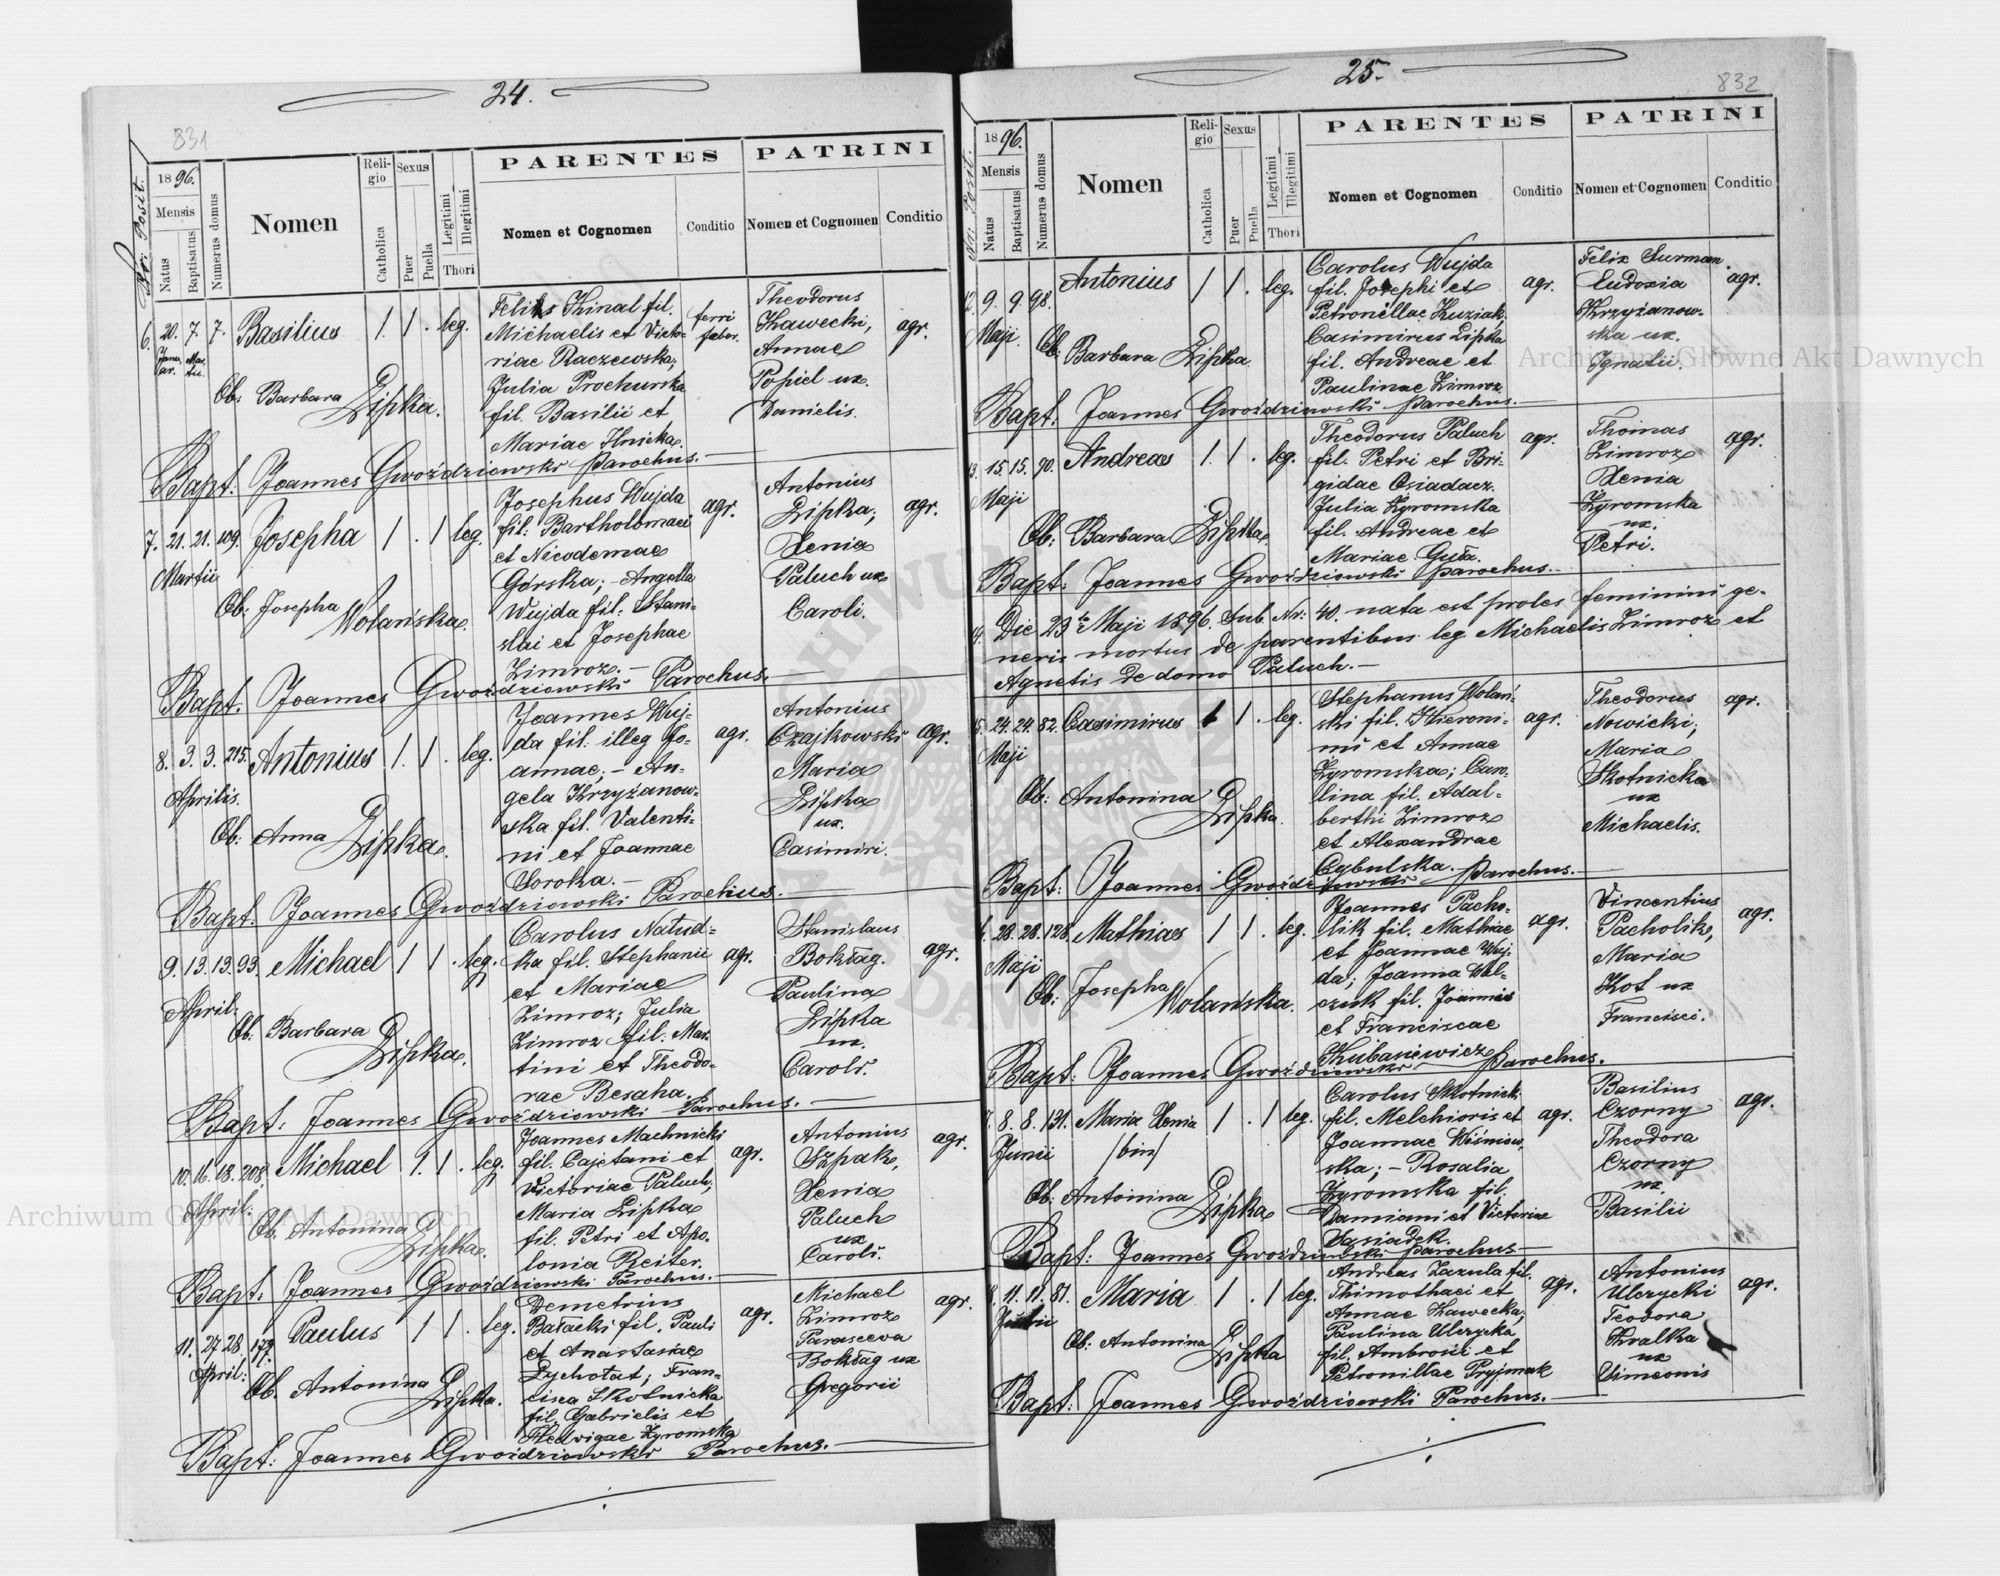 24.
831
Nr. Posit.
1896.
Mensis
Natus
Baptisatus
Numerus domus
Nomen
Religio
Catholica
Sexus
Puer
Puella
Legitimi
Illegitimi
Thori
PARENTES
Nomen et Cognomen
Conditio
PATRINI
Nomen et Cognomen
Conditio
6. 20. 7. 7. Basilius 1. 1 . leg.
Januar. Martii.
Ob: Barbara Lipka.
Felix Kinal fil.
Michaelis et Victo-
riae Raczewska;
Julia Prochurska
fil. Basilii et
Mariae Ilnicka.
ferri
faber.
Theodorus
Kawecki,
Annae
Popiel ux.
Danielis.
agr.
Bapt. Joannes Gwoździowski Parochus.
7. 21. 21. 109. Josepha 1 . 1 leg.
Martii
Ob: Josepha Wolańska.
Josephus Wujda
fil: Bartholomaei
et Nicodemae
Gorska; - Angella
Wujda fil: Stani-
slai et Josephae
Zimroz. -
agr.
Antonius
Lipka;
Xenia
Paluch ux
Caroli.
agr.
Bapt. Joannes Gwoździowski Parochus.
8. 3. 3. 215. Antonius 1. 1 . leg.
Aprilis.
Ob: Anna Lipka.
Joannes Wuj-
da fil. illeg Jo-
annae; - An-
gela Krzyżanow-
ska fil. Valenti-
ni et Joannae
Soroka. -
agr.
Antonius
Czajkowski
Maria
Lipka
ux.
Casimiri.
agr.
Bapt. Joannes Gwoździowski Parochus.
9. 13. 13. 93. Michael 1 1 . leg.
April:
Ob: Barbara Lipka.
Carolus Natud=
ka fil. Stephanii
et Mariae
Zimroz; Julia
Zimroz fil. Mar-
tini et Theodo-
rae Besaha.
agr.
Stanislaus
Boktag.
Paulina
Lipka
ux.
Caroli.
agr.
Bapt: Joannes Gwoździowski Parochus.
10. 16. 18. 208. Michael 1. 1 . leg.
April:
Ob. Antonina Lipka.
Joannes Machnicki
fil. Cajetani et
Victoriae Paluch;
Maria Lipka
fil. Petri et Apo-
lonia Reiter.
agr.
Antonius
Szpak,
Xenia
Paluch
ux
Caroli.
agr.
Bapt: Joannes Gwoździowski Parochus.
11. 27. 28. 179. Paulus 1 1 . leg.
April:
Ob. Antonina Lipka.
Demetrius
Bałacki fil. Pauli
et Anastasiae
Lychołat; Fran-
cisca Skotnicka
fil. Gabrielis et
Hedvigae Zyromska
agr.
Michael
Zimroz
Parasceva
Boktag ux
Gregorii
agr.
Bapt: Joannes Gwoździowski Parochus.
25.
832
Nr. Posit.
1896.
Mensis
Natus
Baptisatus
Numerus domus
Nomen
Religio
Catholica
Sexus
Puer
Puella
Legitimi
Illegitimi
Thori
PARENTES
Nomen et Cognomen
Conditio
PATRINI
Nomen et Cognomen
Conditio
12. 9. 9. 98. Antonius 1 1 . leg.
Maji
Ob: Barbara Lipka
Carolus Wujda
fil. Josephi et
Petronellae Kuziak,
Casimirus Lipka
fil. Andreae et
Paulinae Zimroz
agr.
Felix Surman
Eudoxia
Krzyżanow-
ska ux.
Ignatii.
agr.
Bapt. Joannes Gwoździowski Parochus.
13. 15. 15. 90. Andreas 1. 1 . leg.
Maji
Ob: Barbara Lipka.
Theodorus Paluch
fil. Petri et Bri-
gidae Osiadacz.
Julia Zyromska
fil. Andreae et
Mariae Guła.
agr.
Thomas
Zimroz
Xenia
Zyromska
ux.
Petri.
agr.
Bapt: Joannes Gwoździowski Parochus.
Die 23 Maji 1896. sub Nr: 40. nata est proles feminini ge-
neris mortua de parentibus leg Michaelis Zimroz et
Agnetis de domo Paluch. -
15. 24. 24. 82. Casimirus 1 1 . leg.
Maji
Ob: Antonina Lipka.
Stephanus Wolań-
ski fil. Hieroni-
mi et Annae
Zyromska; Caro-
lina fil. Adal-
berthi Zimroz
et Alexandrae
Cybulska.
agr.
Theodorus
Nowicki;
Maria
Skotnicka
ux
Michaelis.
agr.
Bapt: Joannes Gwoździowski Parochus.
28. 28. 128. Mathias 1 1 . leg.
Maji
Ob: Josepha Wolańska.
Joannes Pacho-
lik fil. Mathiae
et Joannae Wuj-
da; Joanna Wal-
czuk fil. Joannis
et Franciscae
Kubasiewicz
agr.
Vincentius
Pacholik,
Maria
Kot ux
Francisci.
agr.
Bapt: Joannes Gwoździowski Parochus.
8. 8. 131. Maria Xenia 1 . 1 leg.
Junii /bin/
Ob: Antonina Lipka
Carolus Skotnicki
fil. Melchioris et
Joannae Wiśniow-
ska; - Rosalia
Zyromska fil.
Damiani et Victoriae
Wasiadek.
agr.
Basilius
Czorny
Theodora
Czorny
ux.
Basilii
agr.
Bapt: Joannes Gwoździowski Parochus
11. 11. 87. Maria 1 . 1 leg.
Ob: Antonina Lipka
Andreas Zazula fil.
Thimothaei et
Annae Kawecka;
Paulina Ulczycka
fil. Ambrosii et
Petronillae Pryjmak
agr.
Antonius
Ulczycki
Teodora
Kralka
ux
Simeonis
agr.
Bapt: Joannes Gwoździowski Parochus.
Archiwum Główne Akt Dawnych
Archiwum Główne Akt Dawnych